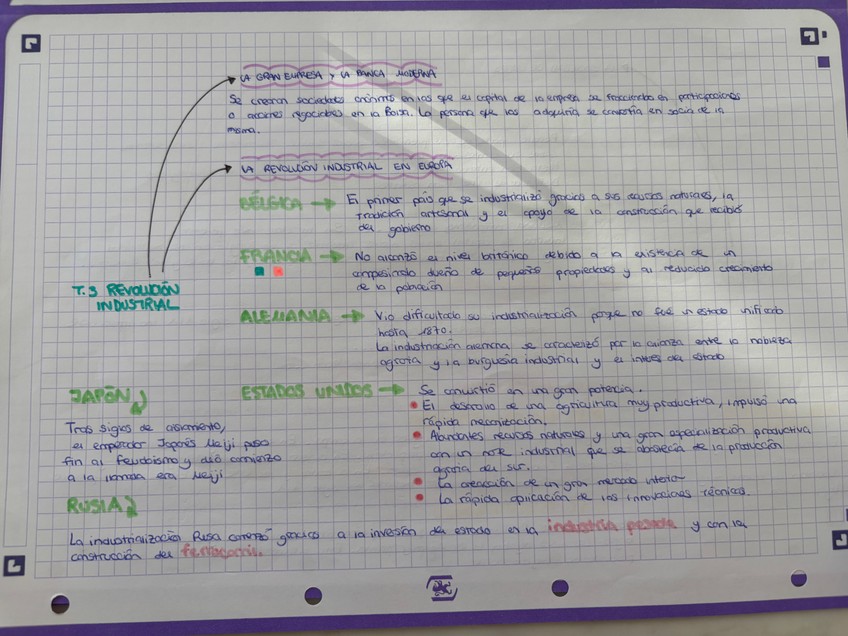 LA GRAN EMPRESA Y LA BANCA MODERNA
Se crearon sociedades anónimas en las que el capital de la empresa se fraccionaba en participaciones
o acciones negociables en la Bolsa. La persona que las adquiría se convertía en socia de la
misma.
LA REVOLUCIÓN INDUSTRIAL EN EUROPA
BÉLGICA → El primer país que se industrializó gracias a sus recursos naturales, la
tradición artesanal y el apoyo de la construcción que recibió
del gobierno
FRANCIA → No alcanzó el nivel británico debido a la existencia de un
campesinado dueño de pequeñas propiedades y al reducido crecimiento
de la población
T.3 REVOLUCIÓN
INDUSTRIAL
ALEMANIA → Vio dificultada su industrialización porque no fue un estado unificado
hasta 1870.
La industriación alemana se caracterizó por la alianza entre la nobleza
agraria y la burguesía industrial y el interés del estado
JAPÓN
Tras siglos de aislamiento,
el emperador Japonés Meiji puso
fin al feudalismo y dió comienzo
a la llamada era Meiji
ESTADOS UNIDOS → Se convirtió en una gran potencia.
• El desarrollo de una agricultura muy productiva, impulsó una
rápida mecanización.
• Abundantes recursos naturales y una gran especialización productiva
con un norte industrial que se abastecía de la producción
agraria del sur.
• La creación de un gran mercado interior
• La rápida aplicación de las innovaciones técnicas.
RUSIA
La industrialización Rusa comenzó gracias a la inversión del estado en la industria pesada y con la
construcción del ferrocarril.